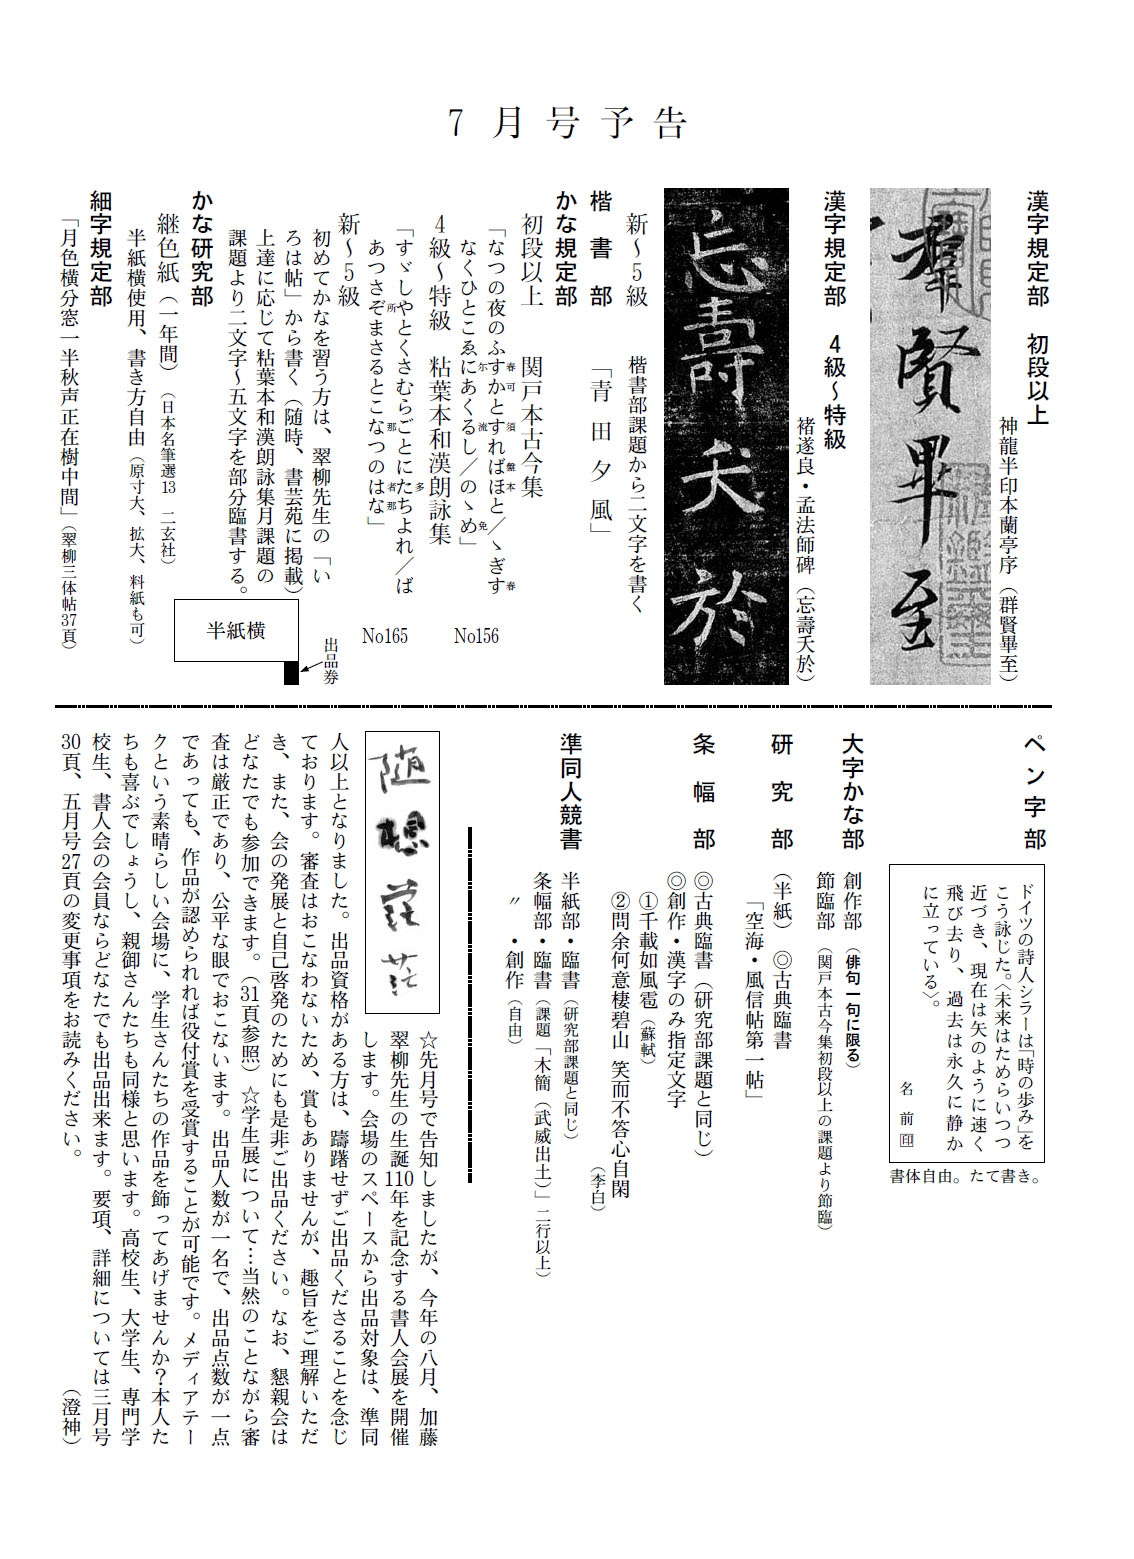 7月号予告
漢字規定部　初段以上
神龍半印本蘭亭序（群賢畢至）
群賢畢至
漢字規定部　4級〜特級
褚遂良・孟法師碑（忘壽夭於）
忘壽夭於
新〜5級　楷書部課題から二文字を書く
楷書部　「青田夕風」
かな規定部
初段以上　関戸本古今集
「なつの夜のふすかとすればほと／ヽぎす
春可須盤本春
なくひとこゑにあくるしのヽめ」
尓流免
No156
4級〜特級　粘葉本和漢朗詠集
「すゞしやとくさむらごとにたちよれ／ば
多
あつさぞまさるとこなつのはな」
所那者那
No165
新〜5級
初めてかなを習う方は、翠柳先生の「い
ろは帖」から書く（随時、書芸苑に掲載）
上達に応じて粘葉本和漢朗詠集月課題の
課題より二文字〜五文字を部分臨書する。
かな研究部
継色紙（一年間）（日本名筆選13　二玄社）
半紙横使用、書き方自由（原寸大、拡大、料紙も可）
半紙横
出品券
細字規定部
「月色横分窓一半秋声正在樹中間」（翠柳三体帖37頁）
ペン字部
ドイツの詩人シラーは「時の歩み」を
こう詠じた。〈未来はためらいつつ
近づき、現在は矢のように速く
飛び去り、過去は永久に静か
に立っている〉。
名前㊞
書体自由。たて書き。
大字かな部　創作部（俳句一句に限る）
節臨部（関戸本古今集初段以上の課題より節臨）
研究部　（半紙）◎古典臨書
「空海・風信帖第一帖」
条幅部　◎古典臨書（研究部課題と同じ）
◎創作・漢字のみ指定文字
①千載如風雹（蘇軾）
②問余何意棲碧山　笑而不答心自閑
（李白）
準同人競書　半紙部・臨書（研究部課題と同じ）
条幅部・臨書（課題「木簡（武威出土）」二行以上）
〃・創作（自由）
随想茫茫
☆先月号で告知しましたが、今年の八月、加藤
翠柳先生の生誕110年を記念する書人会展を開催
します。会場のスペースから出品対象は、準同
人以上となりました。出品資格がある方は、躊躇せずご出品くださることを念じ
ております。審査はおこなわないため、賞もありませんが、趣旨をご理解いただ
き、また、会の発展と自己啓発のためにも是非ご出品ください。なお、懇親会は
どなたでも参加できます。（31頁参照）☆学生展について…当然のことながら審
査は厳正であり、公平な眼でおこないます。出品人数が一名で、出品点数が一点
であっても、作品が認められれば役付賞を受賞することが可能です。メディアテー
クという素晴らしい会場に、学生さんたちの作品を飾ってあげませんか？本人た
ちも喜ぶでしょうし、親御さんたちも同様と思います。高校生、大学生、専門学
校生、書人会の会員ならどなたでも出品出来ます。要項、詳細については三月号
30頁、五月号27頁の変更事項をお読みください。
（澄神）